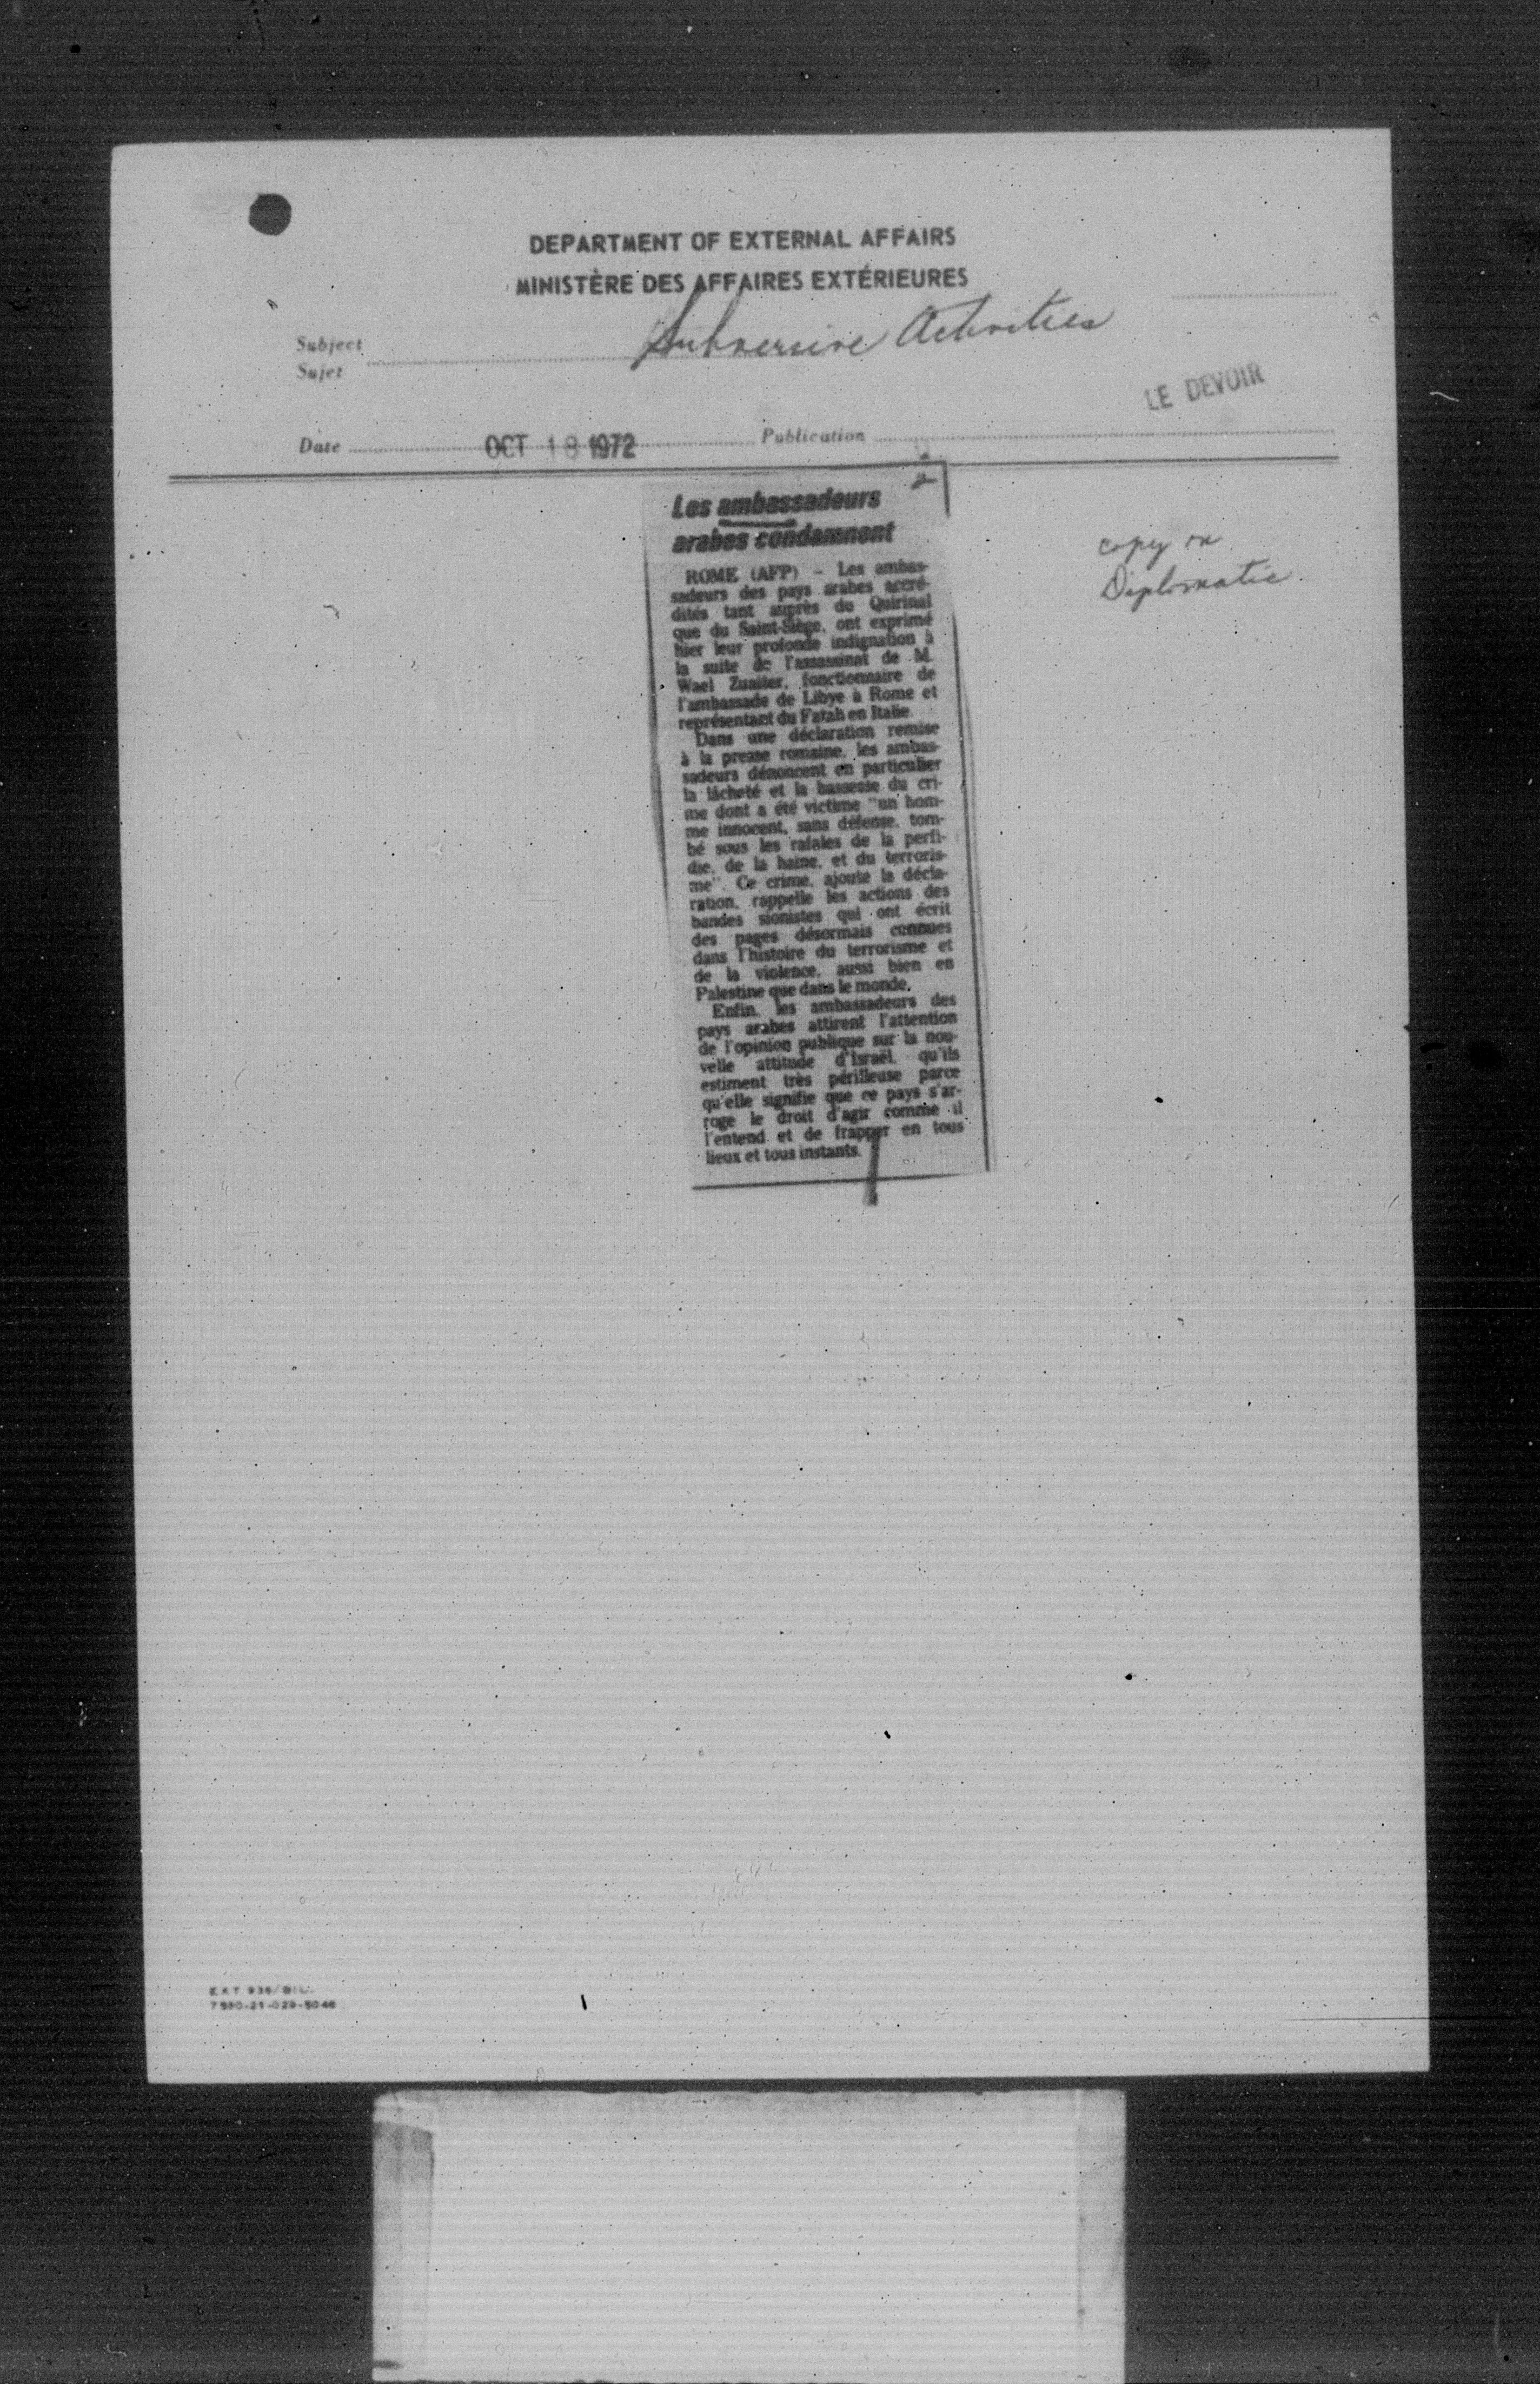 DEPARTMENT OF EXTERNAL AFFAIRS
MINISTÈRE DES AFFAIRES EXTÉRIEURES
Subject
Sujet
Subversive Activities
LE DEVOIR
Date OCT 18 1972 Publication
Les ambassadeurs
arabes condamnent
copy on
Diplomatic
ROME (AFP) - Les ambas-
sadeurs des pays arabes accré-
dités tant auprès du Quirinal
que du Saint-Siège, ont exprimé
hier leur profonde indignation à
la suite de l'assassinat de M.
Wael Zuaiter, fonctionnaire de
l'ambassade de Libye à Rome et
représentant du Fatah en Italie.
Dans une déclaration remise
à la presse romaine, les ambas-
sadeurs dénoncent en particulier
la lâcheté et la bassesse du cri-
me dont a été victime "un hom-
me innocent, sans défense, tom-
bé sous les rafales de la perfi-
die, de la haine, et du terroris-
me". Ce crime, ajoute la décla-
ration, rappelle les actions des
bandes sionistes qui ont écrit
des pages désormais connues
dans l'histoire du terrorisme et
de la violence, aussi bien en
Palestine que dans le monde.
Enfin, les ambassadeurs des
pays arabes attirent l'attention
de l'opinion publique sur la nou-
velle attitude d'Israël, qu'ils
estiment très périlleuse parce
qu'elle signifie que ce pays s'ar-
roge le droit d'agir comme il
l'entend et de frapper en tous
lieux et tous instants.
7530-21-029-5046